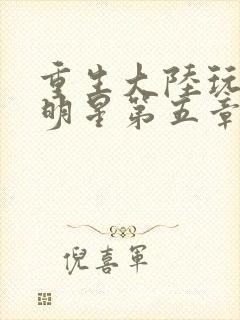 重生大陸玩
明星第五章
倪喜軍